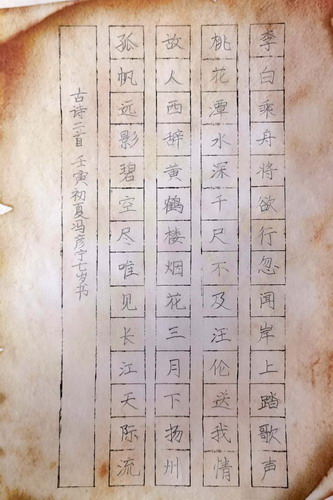 李白乘舟将欲行忽闻岸上踏歌声
桃花潭水深千尺不及汪伦送我情
故人西辞黄鹤楼烟花三月下扬州
孤帆远影碧空尽唯见长江天际流
古诗二首 壬寅初夏冯彦宁七岁书